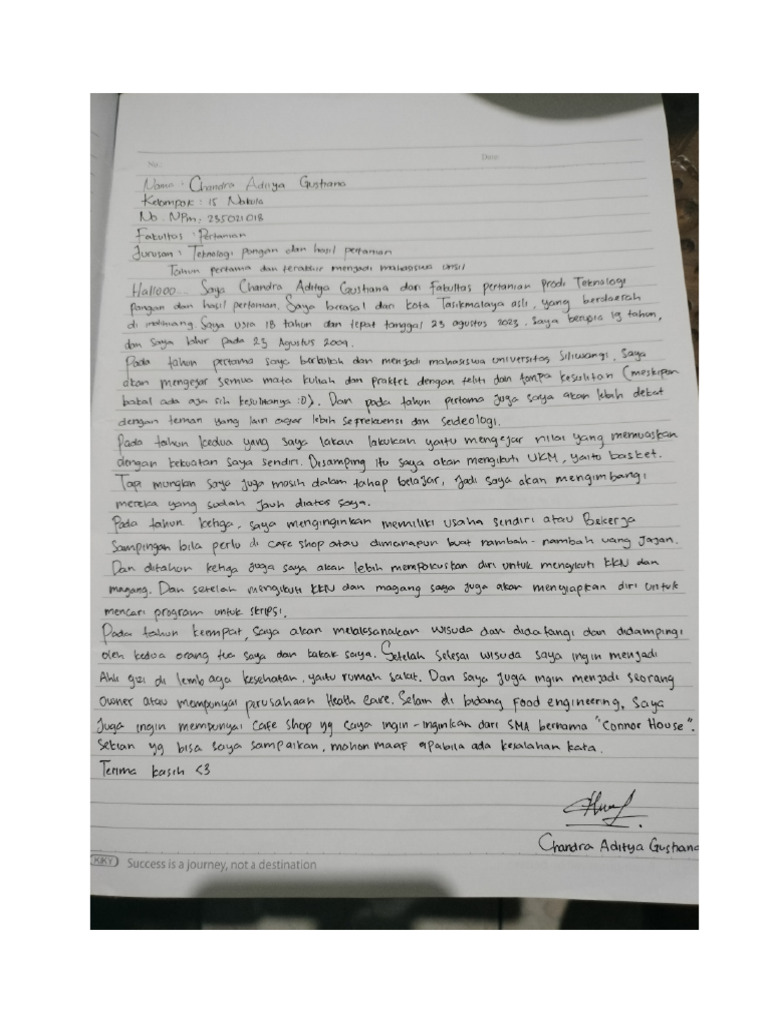 No. Date
Nama : Chandra Aditya Gustiana
Kelompok : 15 Nakula
No. NPM : 235021018
Fakultas : Pertanian
Jurusan : Teknologi pangan dan hasil pertanian
Tahun pertama dan terakhir menjadi mahasiswa unsil
Hallooo... Saya Chandra Aditya Gustiana dari Fakultas pertanian Prodi Teknologi
pangan dan hasil pertanian. Saya berasal dari kota Tasikmalaya asli, yang berdaerah
di Saya usia 18 tahun dan tepat tanggal 23 agustus 2023, saya berusia 19 tahun,
dan saya lahir pada 23 Agustus 2004.
Pada tahun pertama saya berkuliah dan menjadi mahasiswa universitas siliwangi, saya
akan mengejar semua mata kuliah dan praktek dengan teliti dan tanpa kesulitan (meskipun
bakal ada aja sih kesulitanya :D). Dan pada tahun pertama juga saya akan lebih dekat
dengan teman yang lain agar lebih sefrekuensi dan seideologi.
Pada tahun kedua yang saya lakan lakukan yaitu mengejar nilai yang memuaskan
dengan kekuatan saya sendiri. Disamping itu saya akan mengikuti UKM, yaitu basket.
Tapi mungkin saya juga masih dalam tahap belajar, jadi saya akan mengimbangi
mereka yang sudah jauh diatas saya.
Pada tahun ketiga, saya menginginkan memiliki usaha sendiri atau Bekerja
Sampingan bila perlu di cafe shop atau dimanapun buat nambah-nambah uang jajan.
Dan ditahun ketiga juga saya akan lebih memfokuskan diri untuk mengikuti KKN dan
magang. Dan setelah mengikuti KKN dan magang saya juga akan menyiapkan diri untuk
mencari program untuk skripsi.
Pada tahun keempat, saya akan melaksanakan wisuda dan didatangi dan didampingi
oleh kedua orang tua saya dan kakak saya. Setelah selesai wisuda saya ingin menjadi
Ahli gizi di lembaga kesehatan, yaitu rumah sakit. Dan saya juga ingin menjadi seorang
owner atau mempunyai perusahaan Heath care. Selain di bidang food engineering, saya
juga ingin mempunyai cafe shop yg saya ingin-inginkan dari SMA bernama "Connor House".
Sekian yg bisa saya sampaikan, mohon maaf apabila ada kesalahan kata.
Terima kasih <3
Chandra Aditya Gustiana
KIKY Success is a journey, not a destination